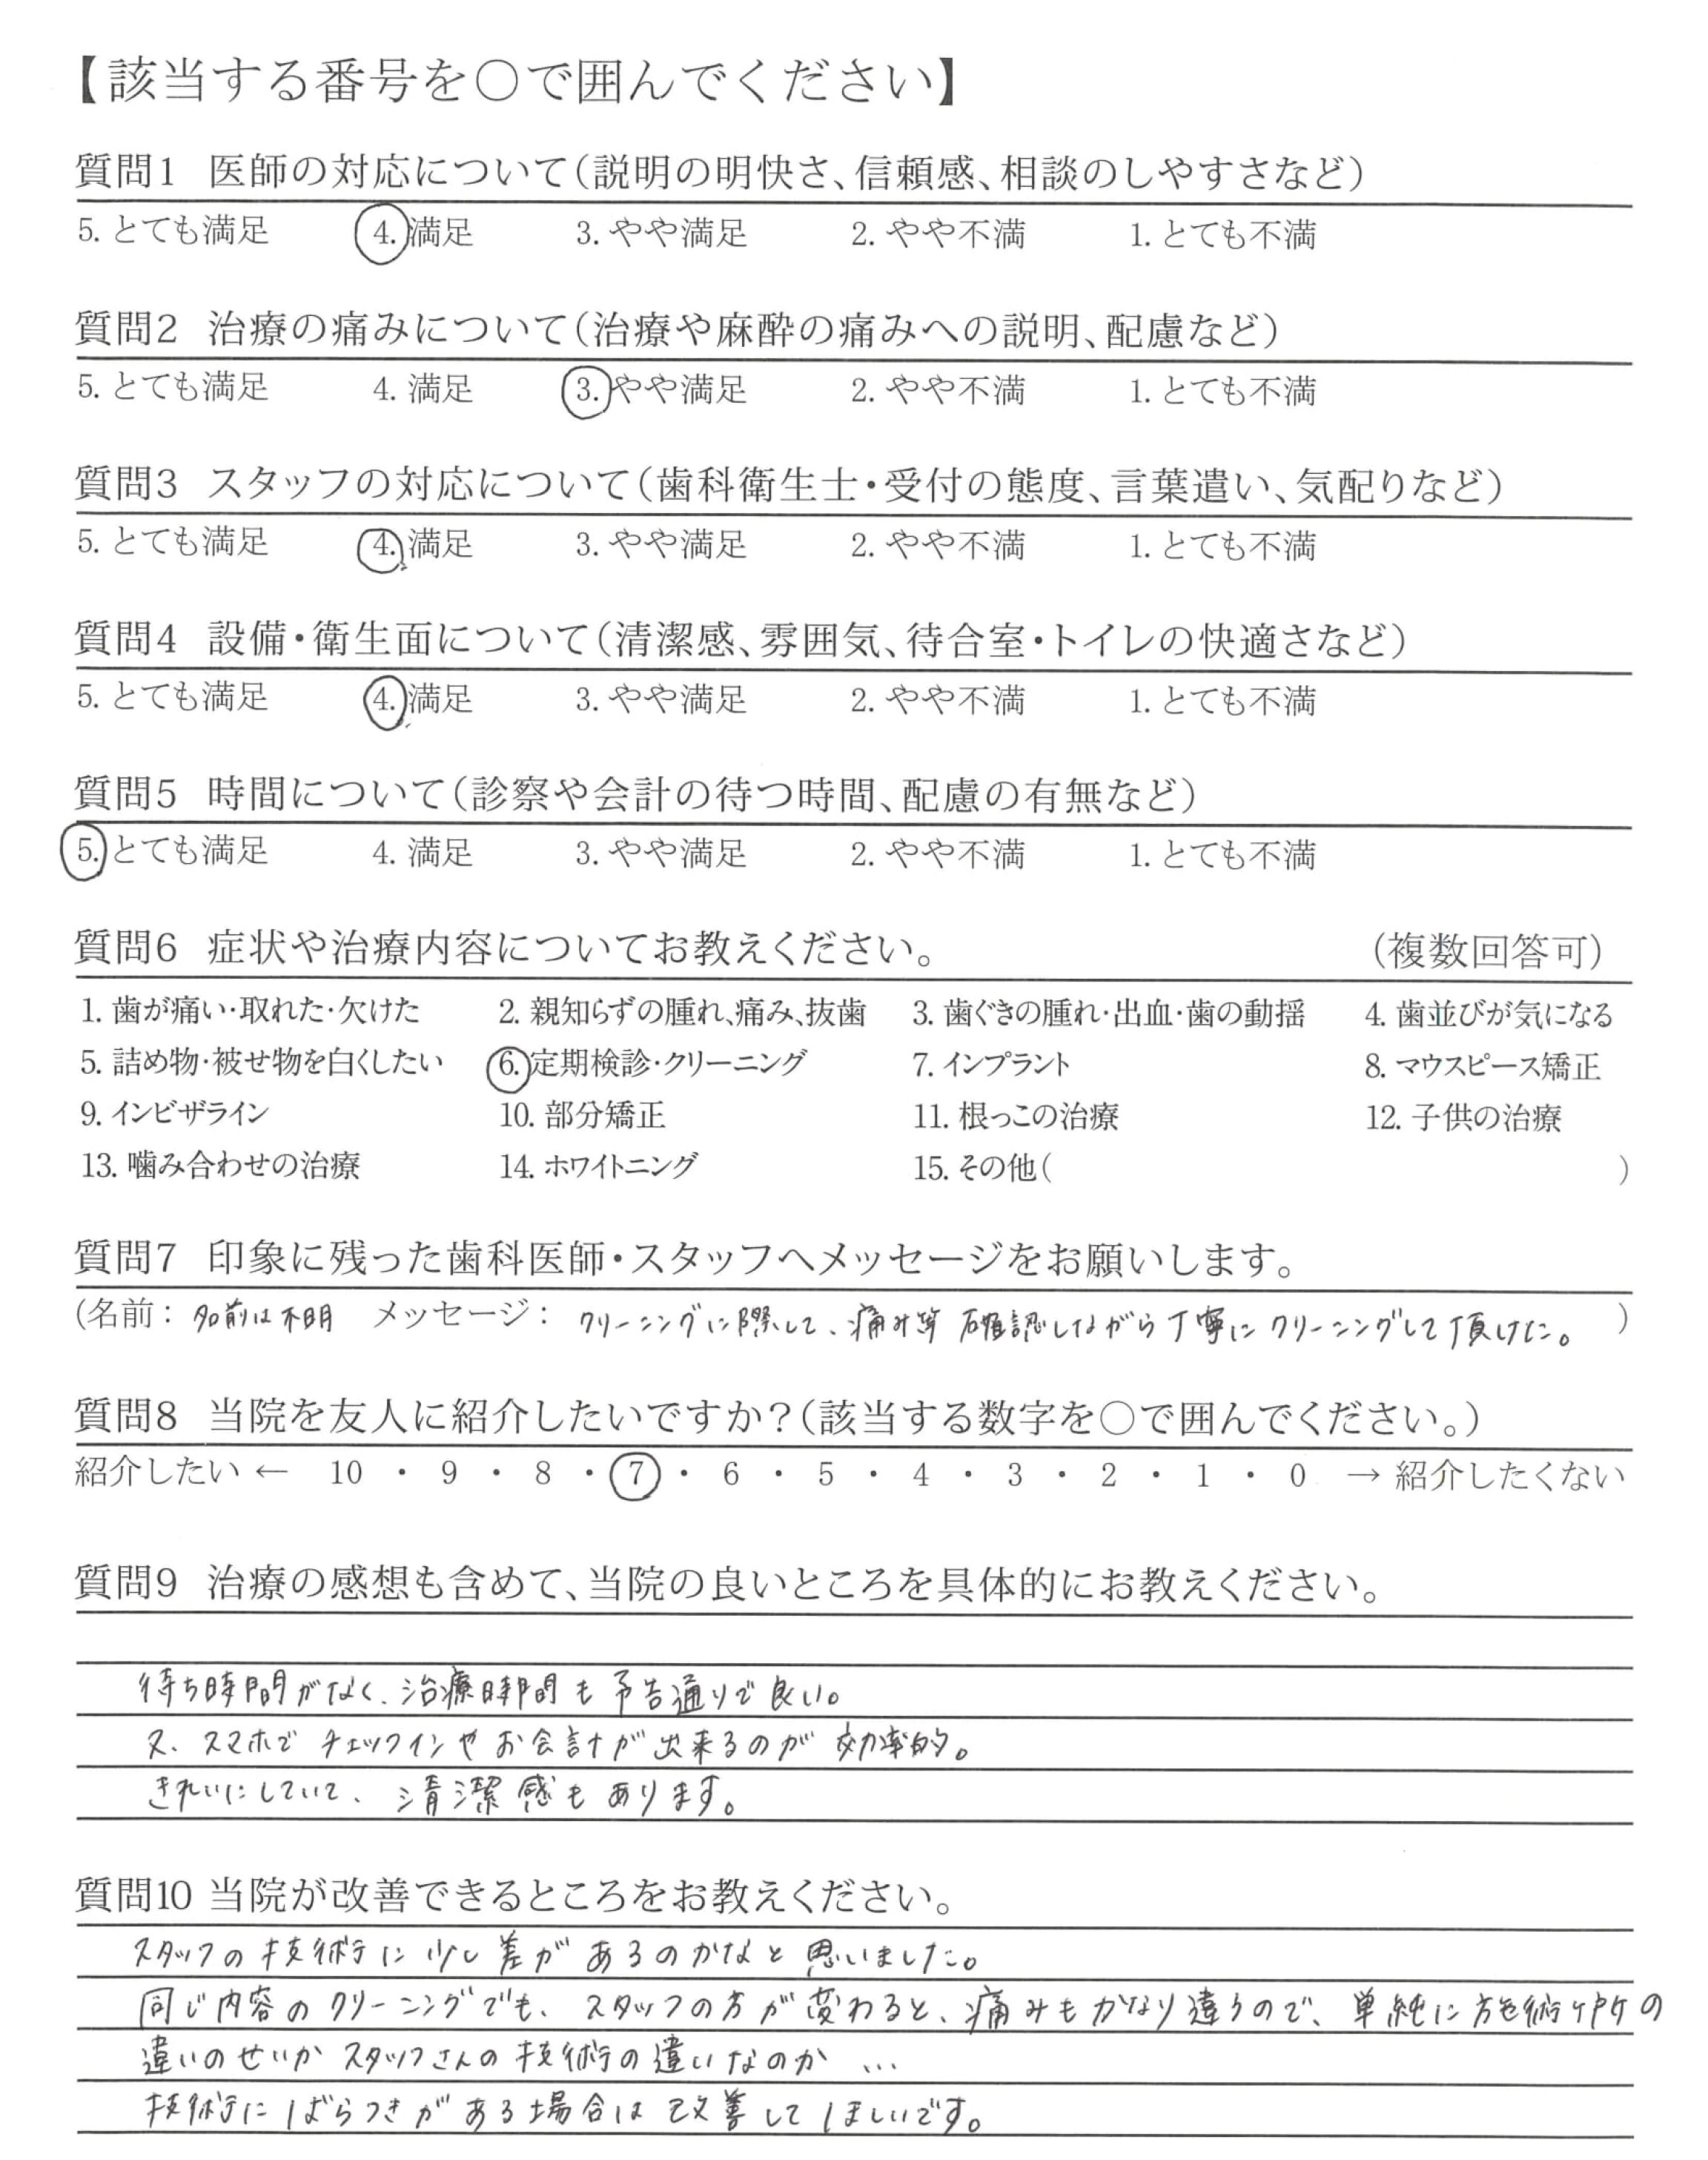 【該当する番号を○で囲んでください】
質問1 医師の対応について(説明の明快さ、信頼感、相談のしやすさなど)
5. とても満足 4. 満足 3. やや満足 2. やや不満 1. とても不満
質問2 治療の痛みについて(治療や麻酔の痛みへの説明、配慮など)
5. とても満足 4. 満足 3. やや満足 2. やや不満 1. とても不満
質問3 スタッフの対応について(歯科衛生士・受付の態度、言葉遣い、気配りなど)
5. とても満足 4. 満足 3. やや満足 2. やや不満 1. とても不満
質問4 設備・衛生面について(清潔感、雰囲気、待合室・トイレの快適さなど)
5. とても満足 4. 満足 3. やや満足 2. やや不満 1. とても不満
質問5 時間について(診察や会計の待つ時間、配慮の有無など)
5. とても満足 4. 満足 3. やや満足 2. やや不満 1. とても不満
質問6 症状や治療内容についてお教えください。 (複数回答可)
1. 歯が痛い・取れた・欠けた 2. 親知らずの腫れ、痛み、抜歯 3. 歯ぐきの腫れ・出血・歯の動揺 4. 歯並びが気になる
5. 詰め物・被せ物を白くしたい 6. 定期検診・クリーニング 7. インプラント 8. マウスピース矯正
9. インビザライン 10. 部分矯正 11. 根っこの治療 12. 子供の治療
13. 噛み合わせの治療 14. ホワイトニング 15. その他( )
質問7 印象に残った歯科医師・スタッフへメッセージをお願いします。
(名前: 名前は不明 メッセージ: クリーニングに際して、痛み等 確認しながら丁寧にクリーニングして頂けた。 )
質問8 当院を友人に紹介したいですか?(該当する数字を○で囲んでください。)
紹介したい ← 10 ・ 9 ・ 8 ・ 7 ・ 6 ・ 5 ・ 4 ・ 3 ・ 2 ・ 1 ・ 0 → 紹介したくない
質問9 治療の感想も含めて、当院の良いところを具体的にお教えください。
待ち時間がなく、治療時間も予告通りで良い。
又、スマホでチェックインやお会計が出来るのが効率的。
きれいにしていて、清潔感もあります。
質問10 当院が改善できるところをお教えください。
スタッフの技術に少し差があるのかなと思いました。
同じ内容のクリーニングでも、スタッフの方が変わると、痛みもかなり違うので、単純に施術ケ所の
違いのせいかスタッフさんの技術の違いなのか…
技術にばらつきがある場合は改善してほしいです。